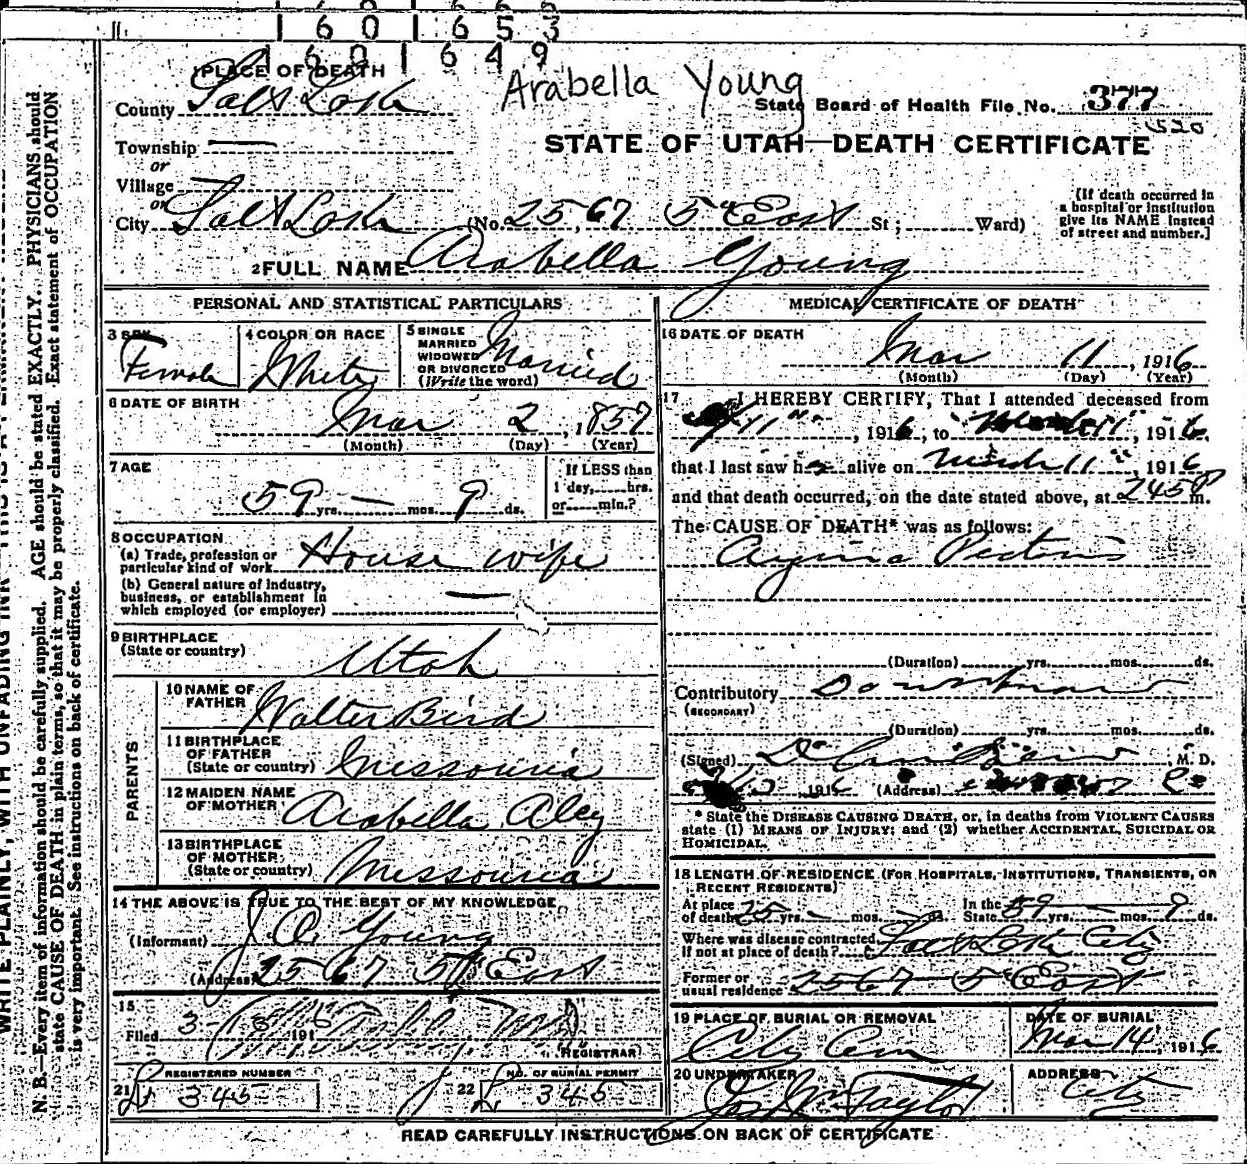 1 6 0 1 6 5 3
1 6 0 1 6 4 9
1 PLACE OF DEATH
Arabella Young
County Salt Lake
State Board of Health File No. 377
520
Township —
STATE OF UTAH—DEATH CERTIFICATE
or
Village —
or
City Salt Lake (No. 2567 5th East St; Ward)
(If death occurred in
a hospital or institution
give its NAME instead
of street and number.]
2 FULL NAME Arabella Young
PERSONAL AND STATISTICAL PARTICULARS
3 SEX Female
4 COLOR OR RACE White
5 SINGLE
MARRIED
WIDOWED
OR DIVORCED
(Write the word) Married
6 DATE OF BIRTH
Mar 2, 1857
(Month) (Day) (Year)
7 AGE
59 yrs. — mos. 9 ds.
If LESS than
1 day, hrs.
or min.?
8 OCCUPATION
(a) Trade, profession or
particular kind of work House wife
(b) General nature of industry,
business, or establishment in
which employed (or employer) —
9 BIRTHPLACE
(State or country) Utah
PARENTS
10 NAME OF
FATHER Walter Bird
11 BIRTHPLACE
OF FATHER
(State or country) Missouria
12 MAIDEN NAME
OF MOTHER Arabella Aley
13 BIRTHPLACE
OF MOTHER
(State or country) Missouria
14 THE ABOVE IS TRUE TO THE BEST OF MY KNOWLEDGE
(Informant) J. O. Young
(Address) 2567 5th East
15
Filed 3- 191
REGISTRAR
REGISTERED NUMBER
21 L 345
NO. OF BURIAL PERMIT
22 L 345
MEDICAL CERTIFICATE OF DEATH
16 DATE OF DEATH
Mar 11, 1916
(Month) (Day) (Year)
17 I HEREBY CERTIFY, That I attended deceased from
11", 1916, to 11, 1916,
that I last saw her alive on March 11", 1916
and that death occurred, on the date stated above, at 245 P m.
The CAUSE OF DEATH* was as follows:
Angina Pectoris
(Duration) yrs. mos. ds.
Contributory
(SECONDARY)
(Duration) yrs. mos. ds.
(Signed) M. D.
1916 (Address)
* State the DISEASE CAUSING DEATH, or, in deaths from VIOLENT CAUSES
state (1) MEANS OF INJURY; and (2) whether ACCIDENTAL, SUICIDAL OR
HOMICIDAL.
18 LENGTH OF RESIDENCE (FOR HOSPITALS, INSTITUTIONS, TRANSIENTS, OR
RECENT RESIDENTS)
At place
of death 25 yrs. — mos. — ds.
In the
State 59 — mos. 9 ds.
Where was disease contracted
if not at place of death? Salt Lake City
Former or
usual residence 2567 5 East
19 PLACE OF BURIAL OR REMOVAL
City Cem
DATE OF BURIAL
Mar 14, 1916
20 UNDERTAKER
Jos Wm Taylor
ADDRESS
City
READ CAREFULLY INSTRUCTIONS ON BACK OF CERTIFICATE
N. B.—Every item of information should be carefully supplied. AGE should be stated EXACTLY. PHYSICIANS should
state CAUSE OF DEATH in plain terms, so that it may be properly classified. Exact statement of OCCUPATION
is very important. See instructions on back of certificate.
WRITE PLAINLY, WITH UNFADING INK